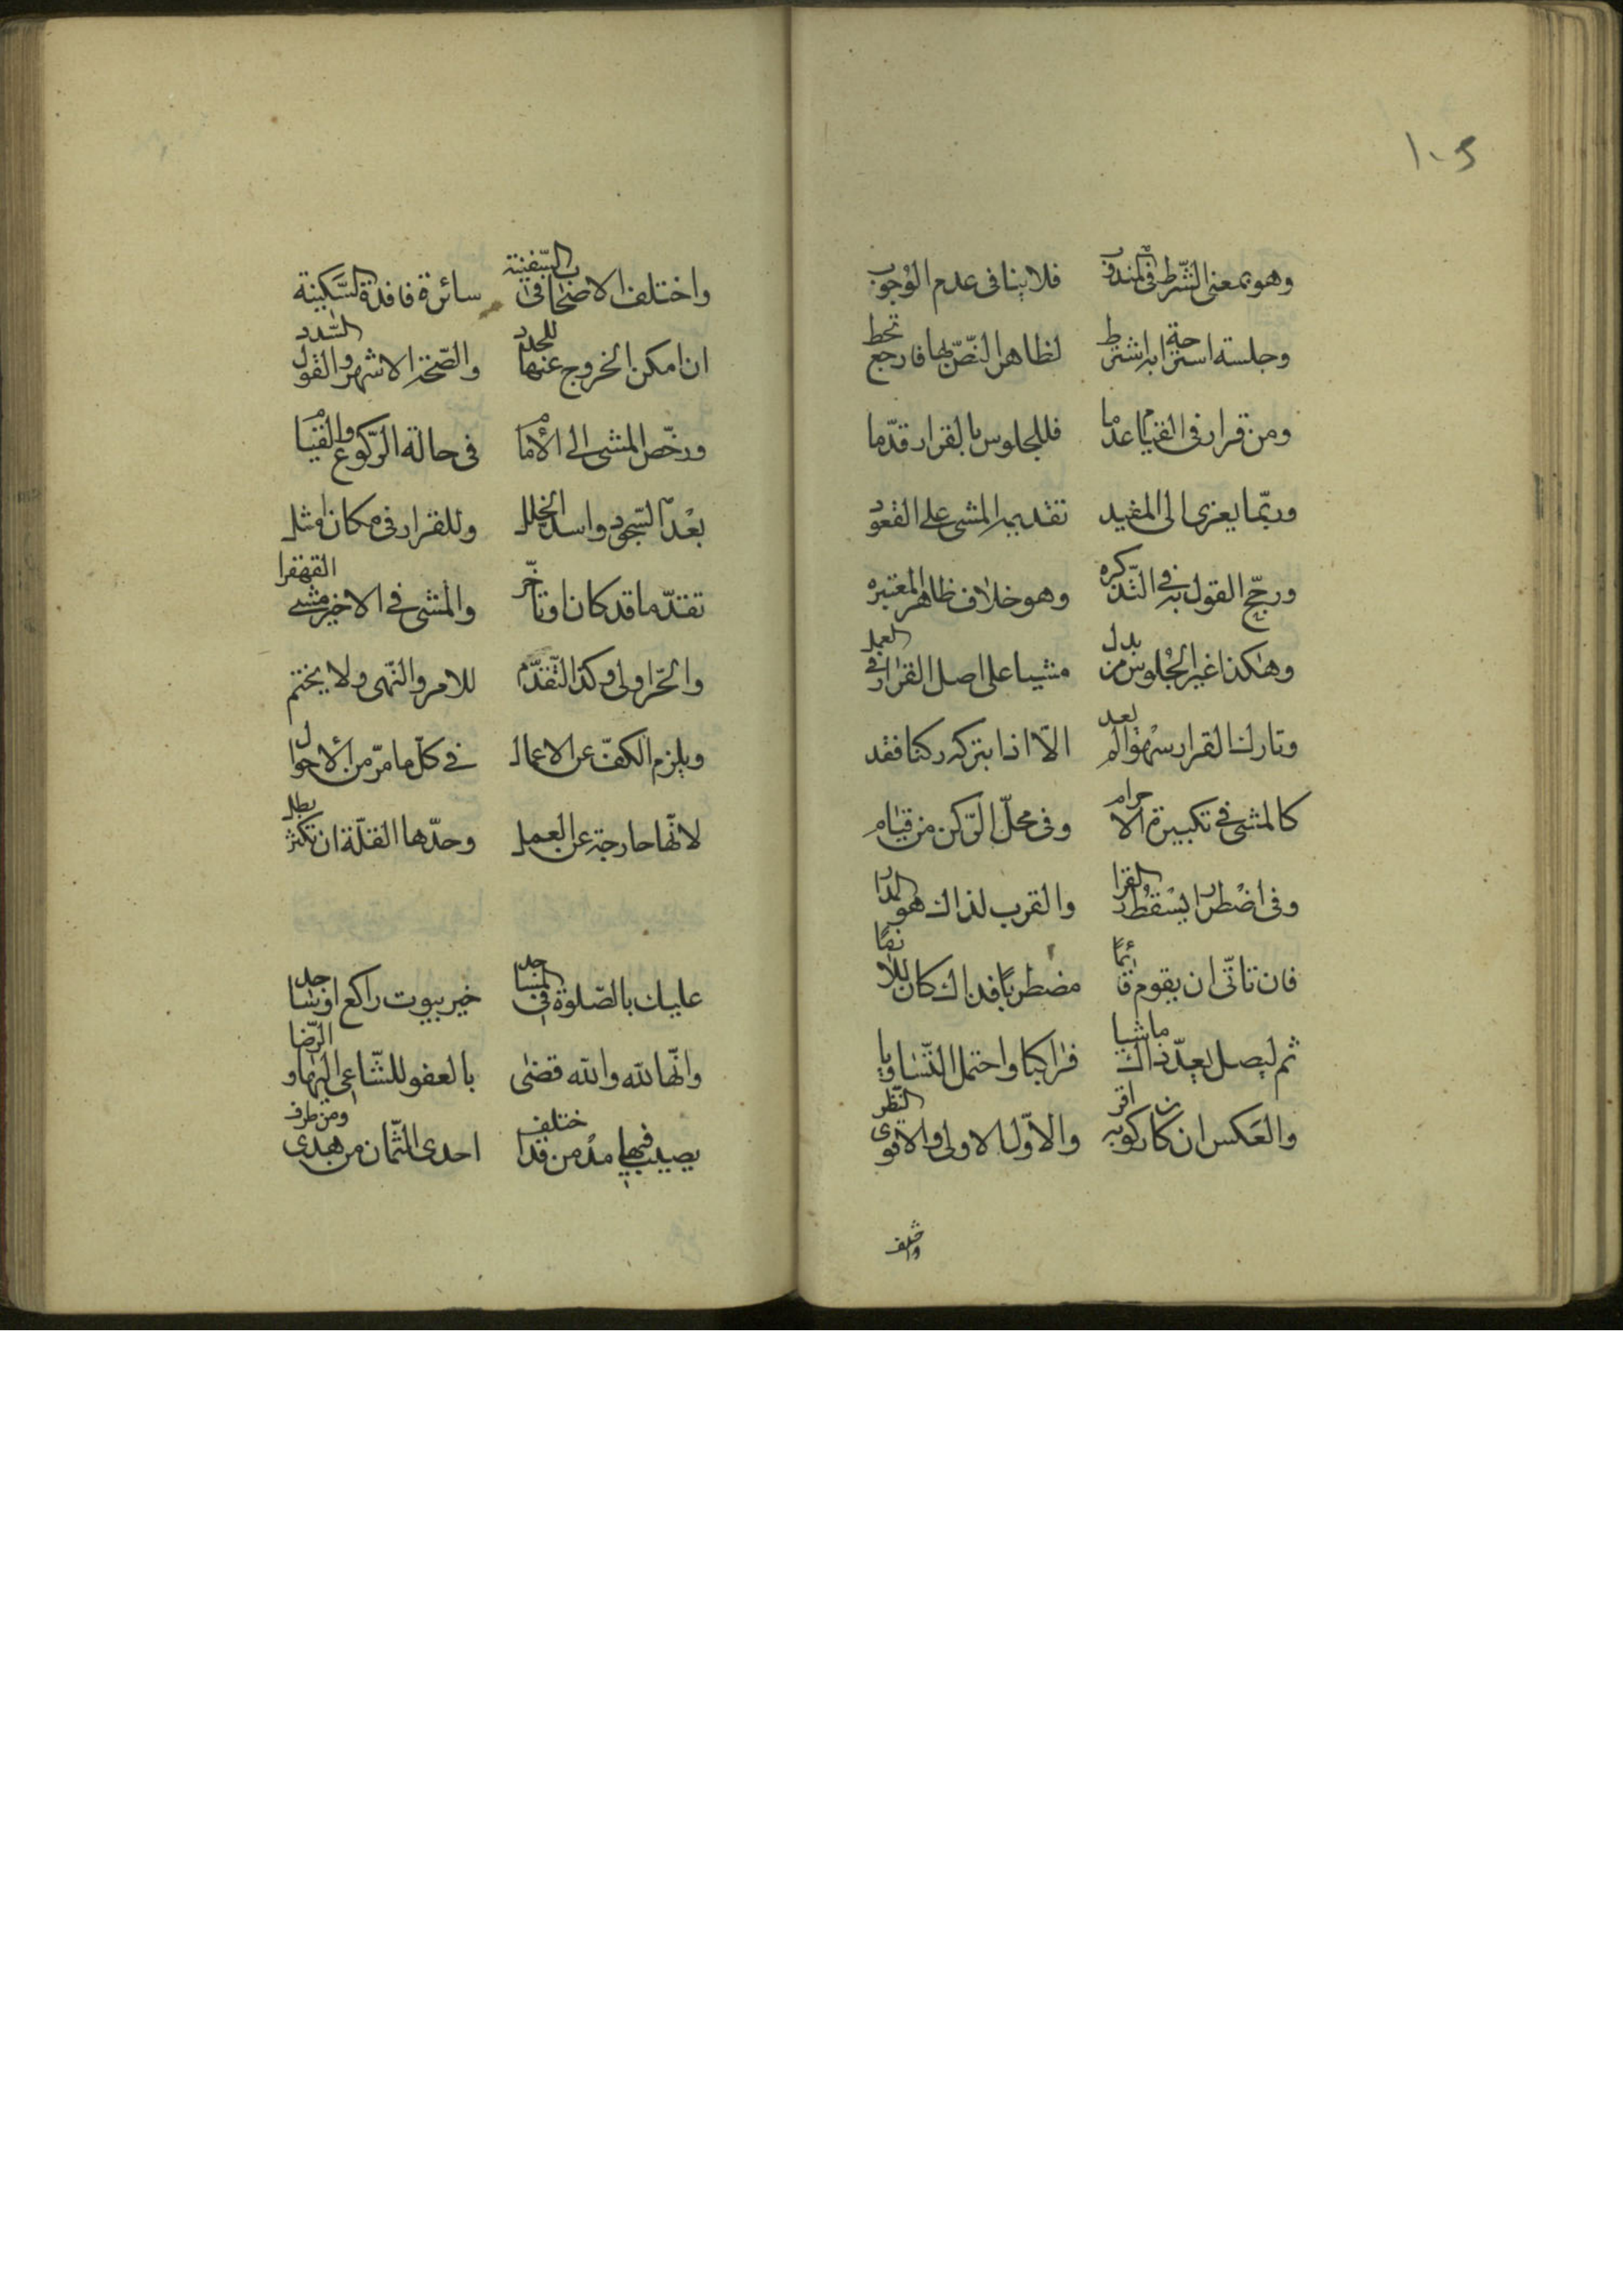 ١٠٢
وهو بمعنى الشّرط فى المندوب فلا ينافى عدم الوُجوب
وجلسته استراحة ابه اشترط لظاهر النّصّ بها فارجع تحط
ومن قرار فى القيام عدما فللجلوس بالقرار قدّما
وربّما يعزى الى المفيد تقديمه المشى على القعود
ورجّح القول به فى التّذكره وهو خلاف ظاهر المعتبره
وهكذا غير الجُلوس من بدل مشيا على اصل القرار فى العمل
وتارك القرار سهوا لم يعد الّا اذا بتركه ركنا فقد
كالمشى فى تكبيرة الاحرام وفى محلّ الرّكن من قيام
وفى اضْطرار يسْقُط القرار والقرب لذاك هو المدار
فان تاتّى ان يقوم قائمًا مضطربًا فذاك كان لازمًا
ثم ليصل بعد ذاك ماشيا فراكبا واحتمل التّساويا
والعَكس ان كان ركوبه اقر والاوّل الاولى والاقوى النّظر
واختلف
واختلف الاصحاب فى السّفينة سائرة فاقدة السَّكينة
ان امكن الخروج عنها للجدد والصّحّة الاشهر والقول السّدد
ورخّص المشى الى الأمام فى حالة الرّكوع والقيام
بعْد السّجود واسد الخلل وللقرار فى مكان امثل
تقدّما قد كان او تأخّر والمشى فى الاخير مشى القهقرا
والحّر اولى وكذا التّقدّم للامر والنّهى ولا يختم
ويلزم الكفّ عن الاعمال فى كلّ ما مرّ من الأحوال
لانّها خارجة عن العمل وحدّها القلّة ان تكثر بطل
عليك بالصّلوة فى المساجد خير بيوت راكع او ساجد
وانّها لله والله قضى بالعفو للسّاعى اليها والرّضا
يصيب فيها مدمن قد اختلف احدى الثّمان من هدى ومن طرف